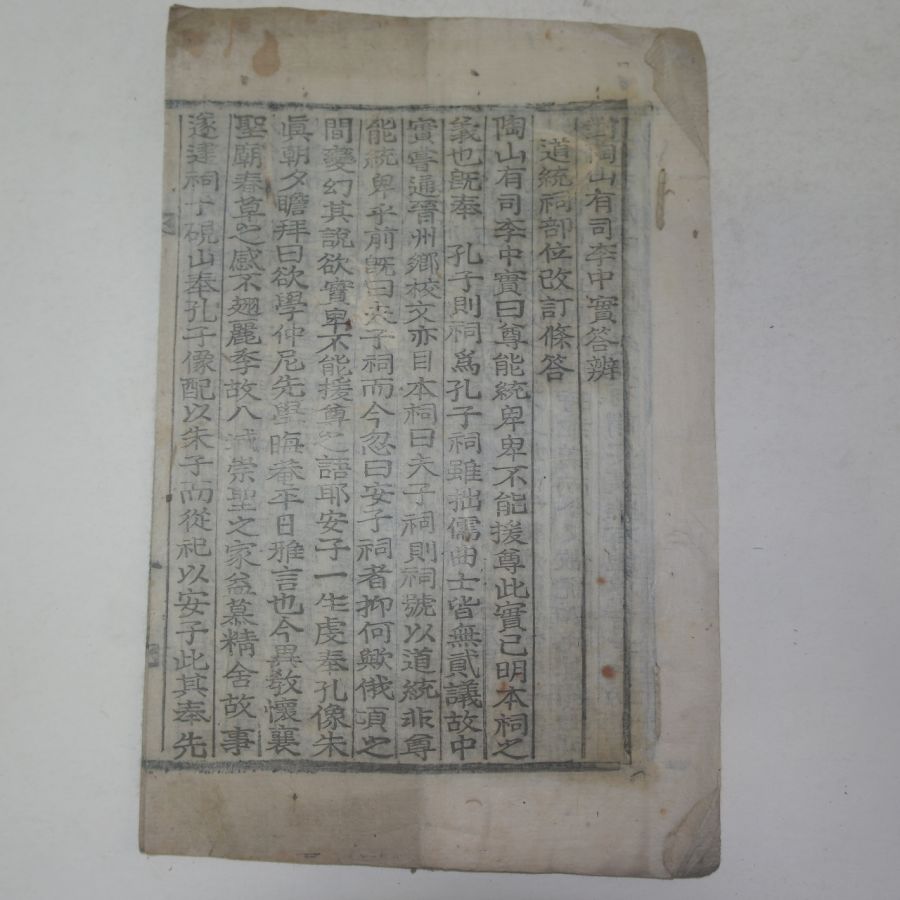 對陶山有司李中實答辨
道統祠部位改訂條答
陶山有司李中實曰尊能統卑卑不能援尊此實已明本祠之
義也旣奉 孔子則祠爲孔子祠雖拙儒曲士皆無貳議故中
實嘗通晉州鄕校文亦目本祠曰夫子祠則祠號以道統非尊
能統卑乎前旣曰夫子祠而今忽曰安子祠者抑何歟俄頃之
間變幻其說欲實卑不能援尊之語耶安子一生虔奉孔像朱
眞朝夕瞻拜曰欲學仲尼先學晦菴平日雅言也今異敎懷襄
聖廟春草之感不翅麗季故八域崇聖之家益慕精舍故事
遂建祠于硯山奉孔子像配以朱子而從祀以安子此其奉先